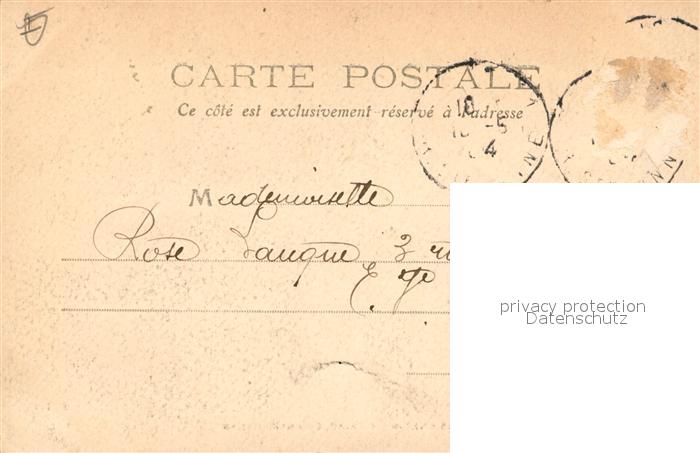 CARTE POSTALE
Ce côté est exclusivement réservé à l'adresse
10
-5
4
Mademoiselle
Rose 3
privacy protection
Datenschutz